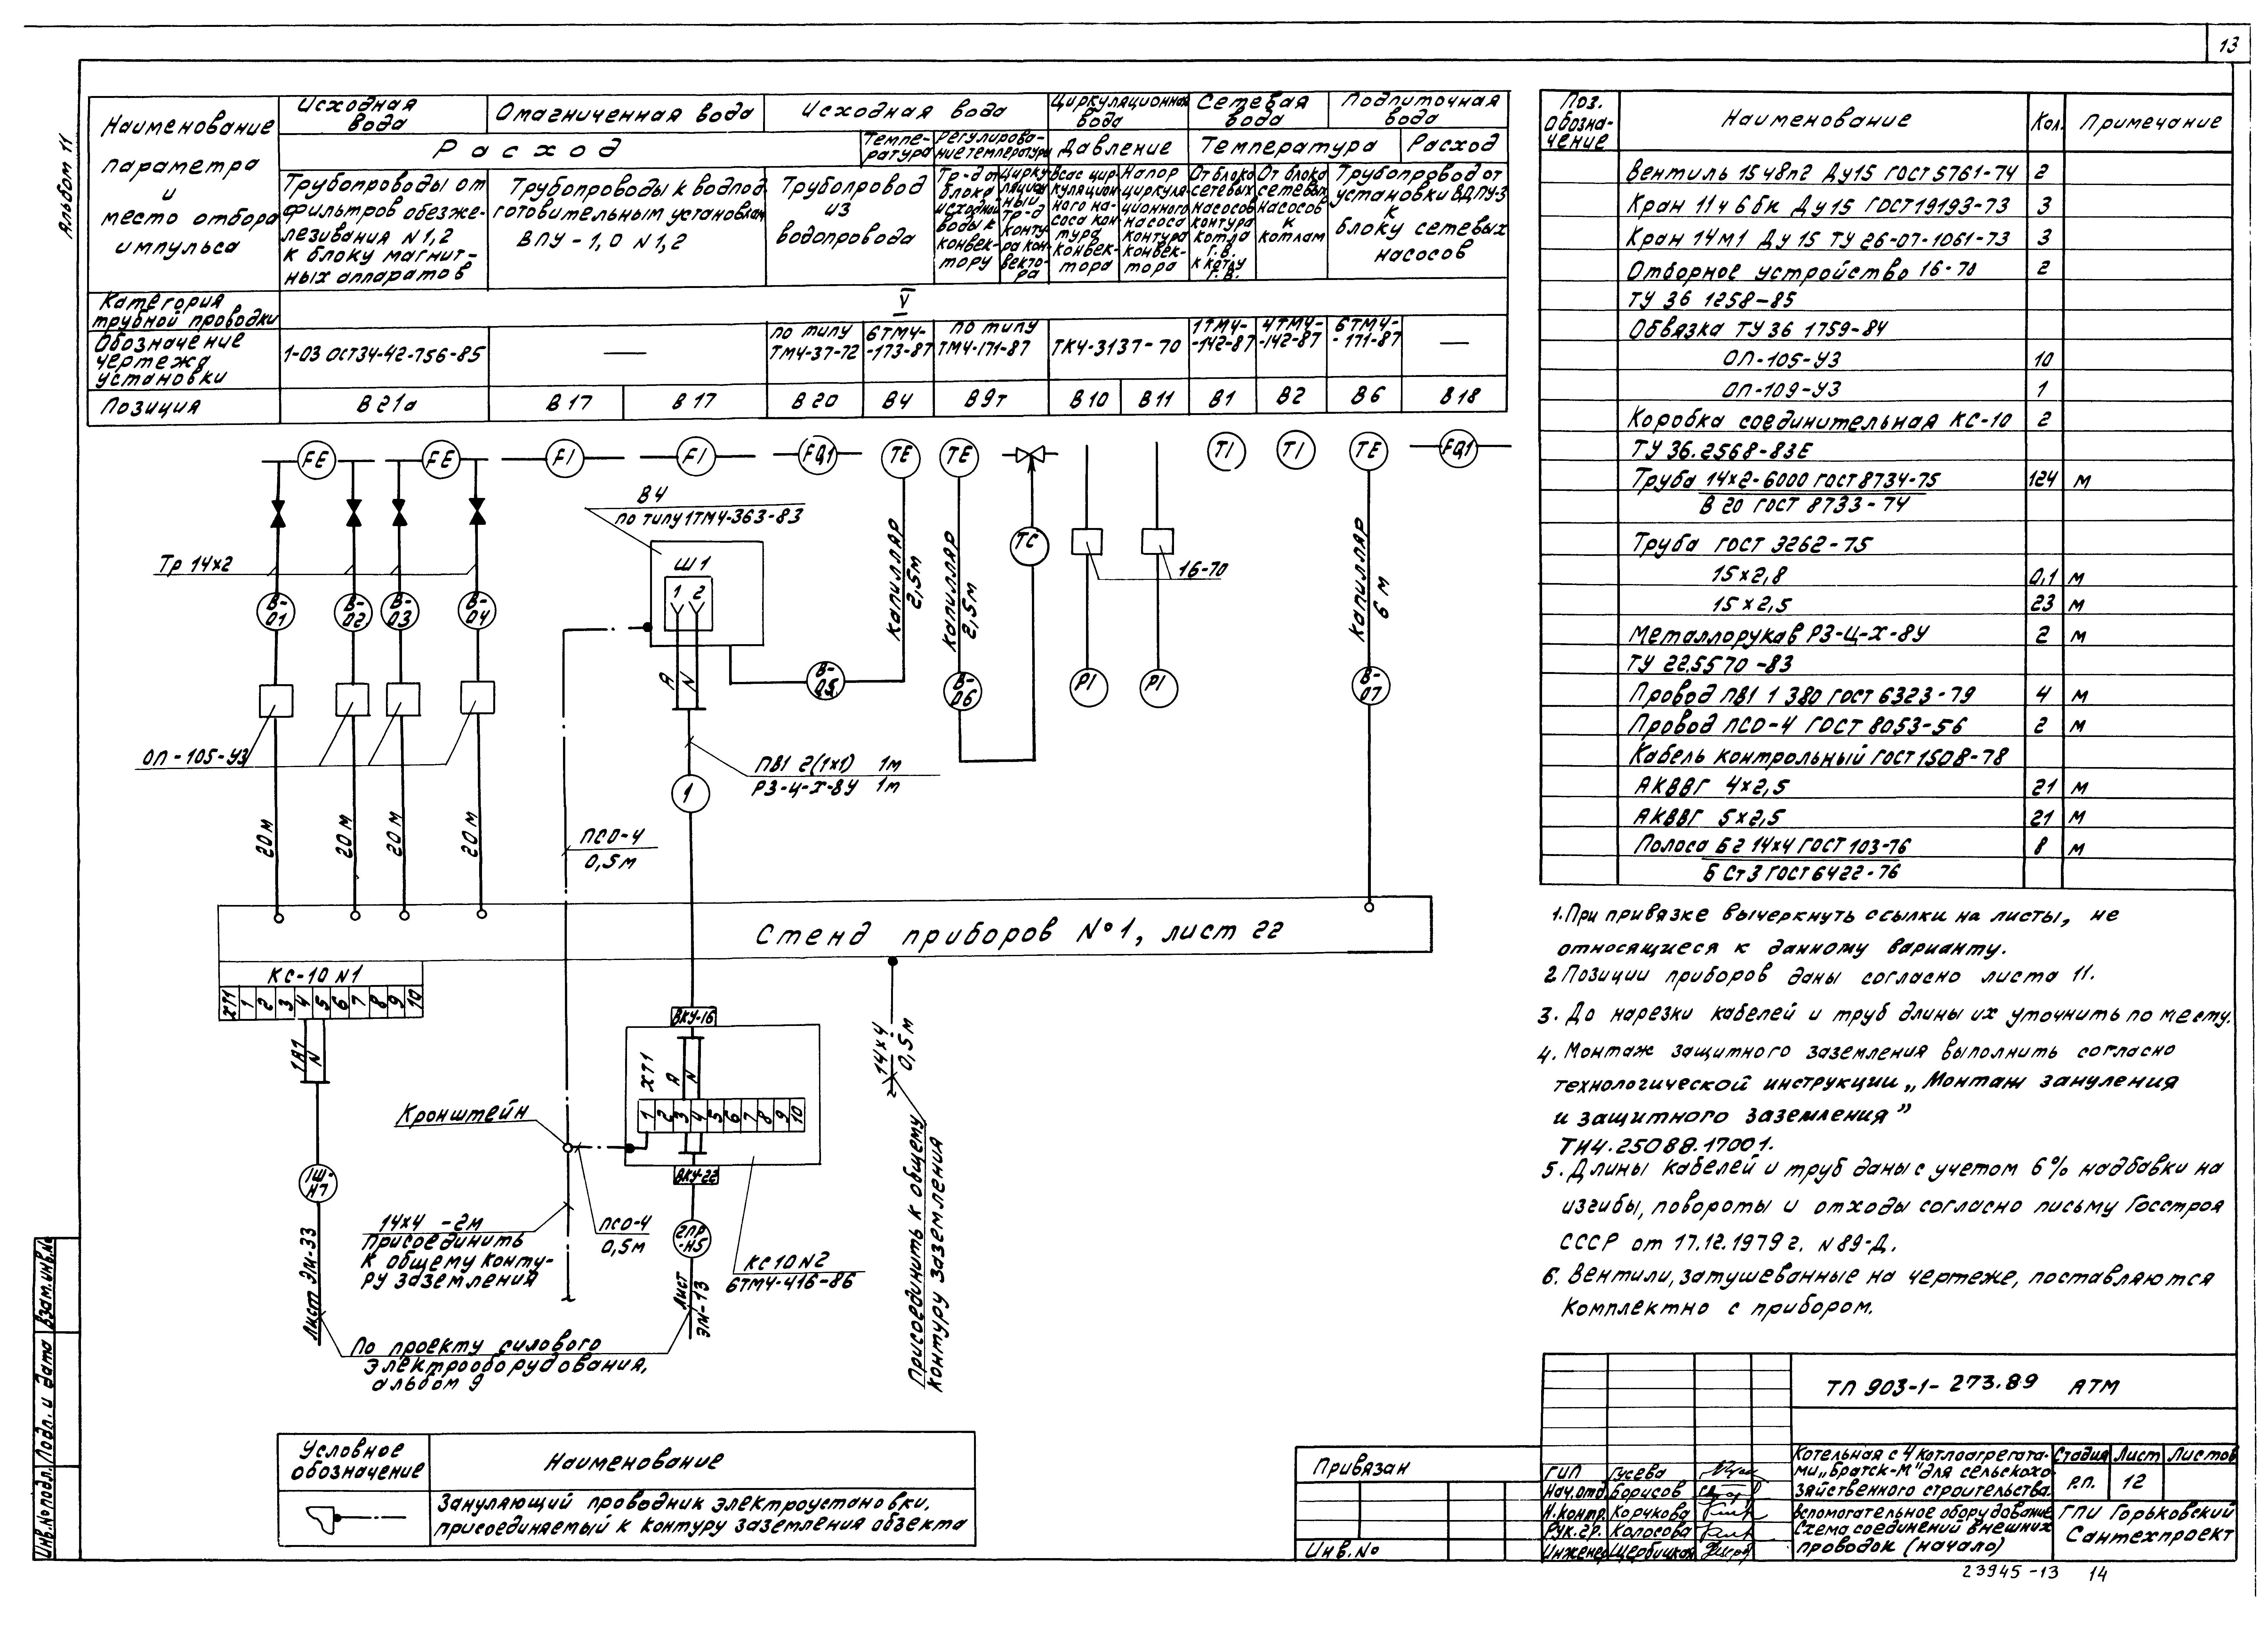 13
Альбом 11
Наименование параметра и место отбора импульса
Исходная вода
Омагниченная вода
Исходная вода
Циркуляционная вода
Сетевая вода
Подпиточная вода
Расход
Температура
Регулирование температуры
Давление
Температура
Расход
Трубопроводы от
фильтров обезже-
лезивания N1,2
к блоку магнит-
ных аппаратов
Трубопроводы к водопод
готовительным установкам
ВПУ-1,0 N1,2
Трубопровод
из
водопровода
Тр-д от
блока
исходной
воды к
конвек-
тору
Цирку
ляцион
ный
тр-д
конту
ра кон
векто-
ра
Всас цир-
куляцион
ного на-
соса кон
тура
конвек-
тора
Напор
циркуля-
ционного
насоса
контура
конвек-
тора
От блока
сетевых
насосов
контура
котла
г.в.
к котлу
г.в.
От блока
сетевых
насосов
к
котлам
Трубопровод от
установки ВДПУ-3
к
блоку сетевых
насосов
Категория
трубной проводки
V
Обозначение
чертежа
установки
1-03 ОСТ34-42-756-85
—
по типу
ТМ4-37-72
6ТМ4-
-173-87
по типу
ТМ4-171-87
ТК4-3137-70
1ТМ4-
-142-87
4ТМ4-
-142-87
6ТМ4-
-171-87
—
Позиция
В21а
В17
В17
В20
В4
В9т
В10
В11
В1
В2
В6
В18
FE
FE
FI
FI
FQ1
TE
TE
TI
TI
TE
FQ1
В4
по типу 1ТМ4-363-83
Ш1
1 2
A
N
TC
Тр 14х2
16-70
В-01
В-02
В-03
В-04
В-05
В-06
В-07
PI
PI
капилляр
2,5м
капилляр
2,5м
капилляр
6 м
ОП-105-У3
ПВ1 2(1х1) 1м
РЗ-Ц-Х-8У 1м
1
20 м
20 м
20 м
20 м
ПСО-4
0,5м
Стенд приборов №1, лист 22
КС-10 N1
ХТ1 1 2 3 4 5 6 7 8 9 10
1А1
N
ВКУ-16
ХТ1
A
N
1 2 3 4 5 6 7 8 9 10
ВКУ-22
14х4
0,5м
Присоединить к общему
контуру заземления
Кронштейн
1Ш-
Н7
Лист ЭМ-33
14х4 -2м
Присоединить
к общему конту-
ру заземления
ПСО-4
0,5м
2ПР
-Н5
Лист
ЭМ-13
КС10N2
6ТМ4-416-86
По проекту силового
электрооборудования,
альбом 9
Условное
обозначение
Наименование
Зануляющий проводник электроустановки,
присоединяемый к контуру заземления объекта
Поз.
Обозна-
чение
Наименование
Кол.
Примечание
Вентиль 15ч8п2 Ду15 ГОСТ5761-74 2
Кран 11ч6бк Ду15 ГОСТ19193-73 3
Кран 14М1 Ду15 ТУ 26-07-1061-73 3
Отборное устройство 16-70 2
ТУ 36 1258-85
Обвязка ТУ 36 1759-84
ОП-105-У3 10
ОП-109-У3 1
Коробка соединительная КС-10 2
ТУ 36.2568-83Е
Труба 14х2-6000 ГОСТ 8734-75 124 м
В 20 ГОСТ 8733-74
Труба ГОСТ 3262-75
15х2,8 0,1 м
15х2,5 23 м
Металлорукав РЗ-Ц-Х-8У 2 м
ТУ 22.5570-83
Провод ПВ1 1 380 ГОСТ 6323-79 4 м
Провод ПСО-4 ГОСТ 8053-56 2 м
Кабель контрольный ГОСТ1508-78
АКВВГ 4х2,5 21 м
АКВВГ 5х2,5 21 м
Полоса Б2 14х4 ГОСТ 103-76 8 м
Б Ст3 ГОСТ6422-76
1. При привязке вычеркнуть ссылки на листы, не
относящиеся к данному варианту.
2 Позиции приборов даны согласно листа 11.
3. До нарезки кабелей и труб длины их уточнить по месту.
4. Монтаж защитного заземления выполнить согласно
технологической инструкции „Монтаж зануления
и защитного заземления”
ТИ4.25088.17001.
5. Длины кабелей и труб даны с учетом 6% надбавки на
изгибы, повороты и отходы согласно письму Госстроя
СССР от 17.12.1979г. N89-Д.
6. Вентили, затушеванные на чертеже, поставляются
комплектно с прибором.
ТП 903-1-273.89 АТМ
Котельная с 4 котлоагрегата-
ми „Братск-М” для сельскохо-
зяйственного строительства.
Стадия Лист Листов
Р.П. 12
Вспомогательное оборудование
Схема соединений внешних
проводок (начало)
ГПИ Горьковский
Сантехпроект
ГИП Гусева
Нач.отд. Борисов
Н.контр. Корчкова
Рук.гр. Колосова
Инженер Щербицкая
Привязан
Инв.№
Инв.№подл. Подп. и дата Взам.инв.№
23945-13 14